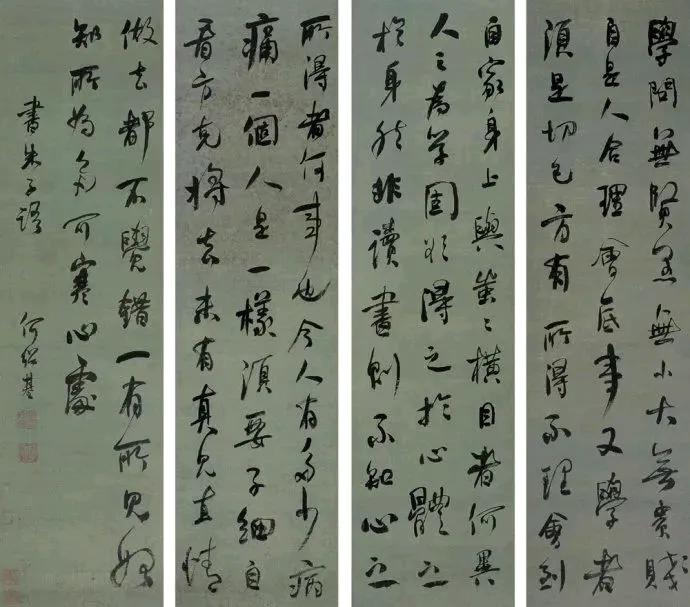 學問無賢愚無小大無貴賤
自是人合理會底事又學者
須是切己方有所得不理會到
自家身上與橫目者何異
人之為學固欲得之於心體之
於身然非讀書則不知心之
所得者何事也今人有多少病
痛一個人是一樣須要子細自
看方克將去未有真見直情
做去都不覺錯一有所見始
知所為多可寒心處
書朱子語
何紹基